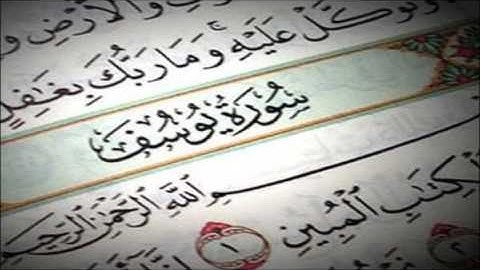 وَالْأَرْضِ وَ
وَتَوَكَّلْ عَلَيْهِ وَمَا رَبُّكَ بِغَٰفِلٍ
سُورَةُ يُوسُفَ
ـمِ اللَّهِ الرَّحْمَٰنِ الرَّحِيمِ
الْكِتَٰبِ الْمُبِينِ ١
٢